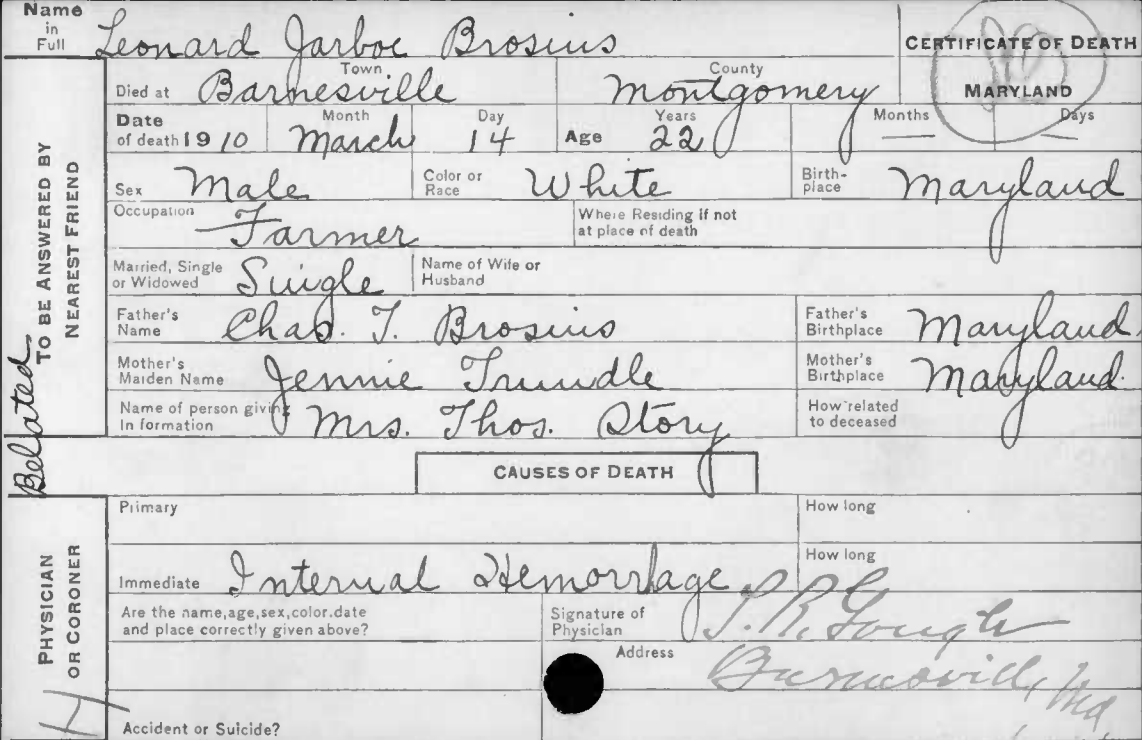 Name in Full Leonard Jarboe Brosius
CERTIFICATE OF DEATH
MARYLAND
TO BE ANSWERED BY NEAREST FRIEND
Belated
Died at Town Barnesville County Montgomery
Date of death 1910 Month March Day 14 Age Years 22 Months — Days —
Sex Male Color or Race White Birth-place Maryland
Occupation Farmer Where Residing if not at place of death
Married, Single or Widowed Single Name of Wife or Husband
Father's Name Chas. T. Brosius Father's Birthplace Maryland
Mother's Maiden Name Jennie Trundle Mother's Birthplace Maryland.
Name of person giving In formation Mrs. Thos. Story How related to deceased
CAUSES OF DEATH
PHYSICIAN OR CORONER
Primary How long
Immediate Internal Hemorrhage. How long
Are the name,age,sex,color.date and place correctly given above? Signature of Physician Gough
Address Barnesville, Md
Accident or Suicide?
H